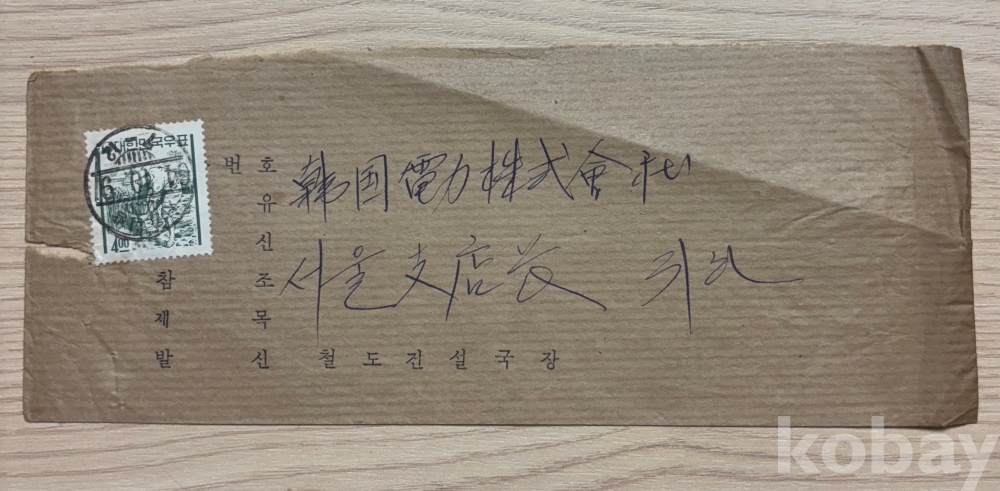 대한민국우표
4.00
번 호 韓国電力株式會社
유
신
참 조 서울支店長 귀하
제 목
발 신 철도건설국장
kobay